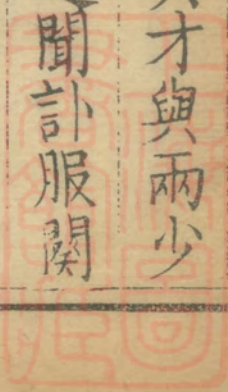 才與兩少
聞訃服闋